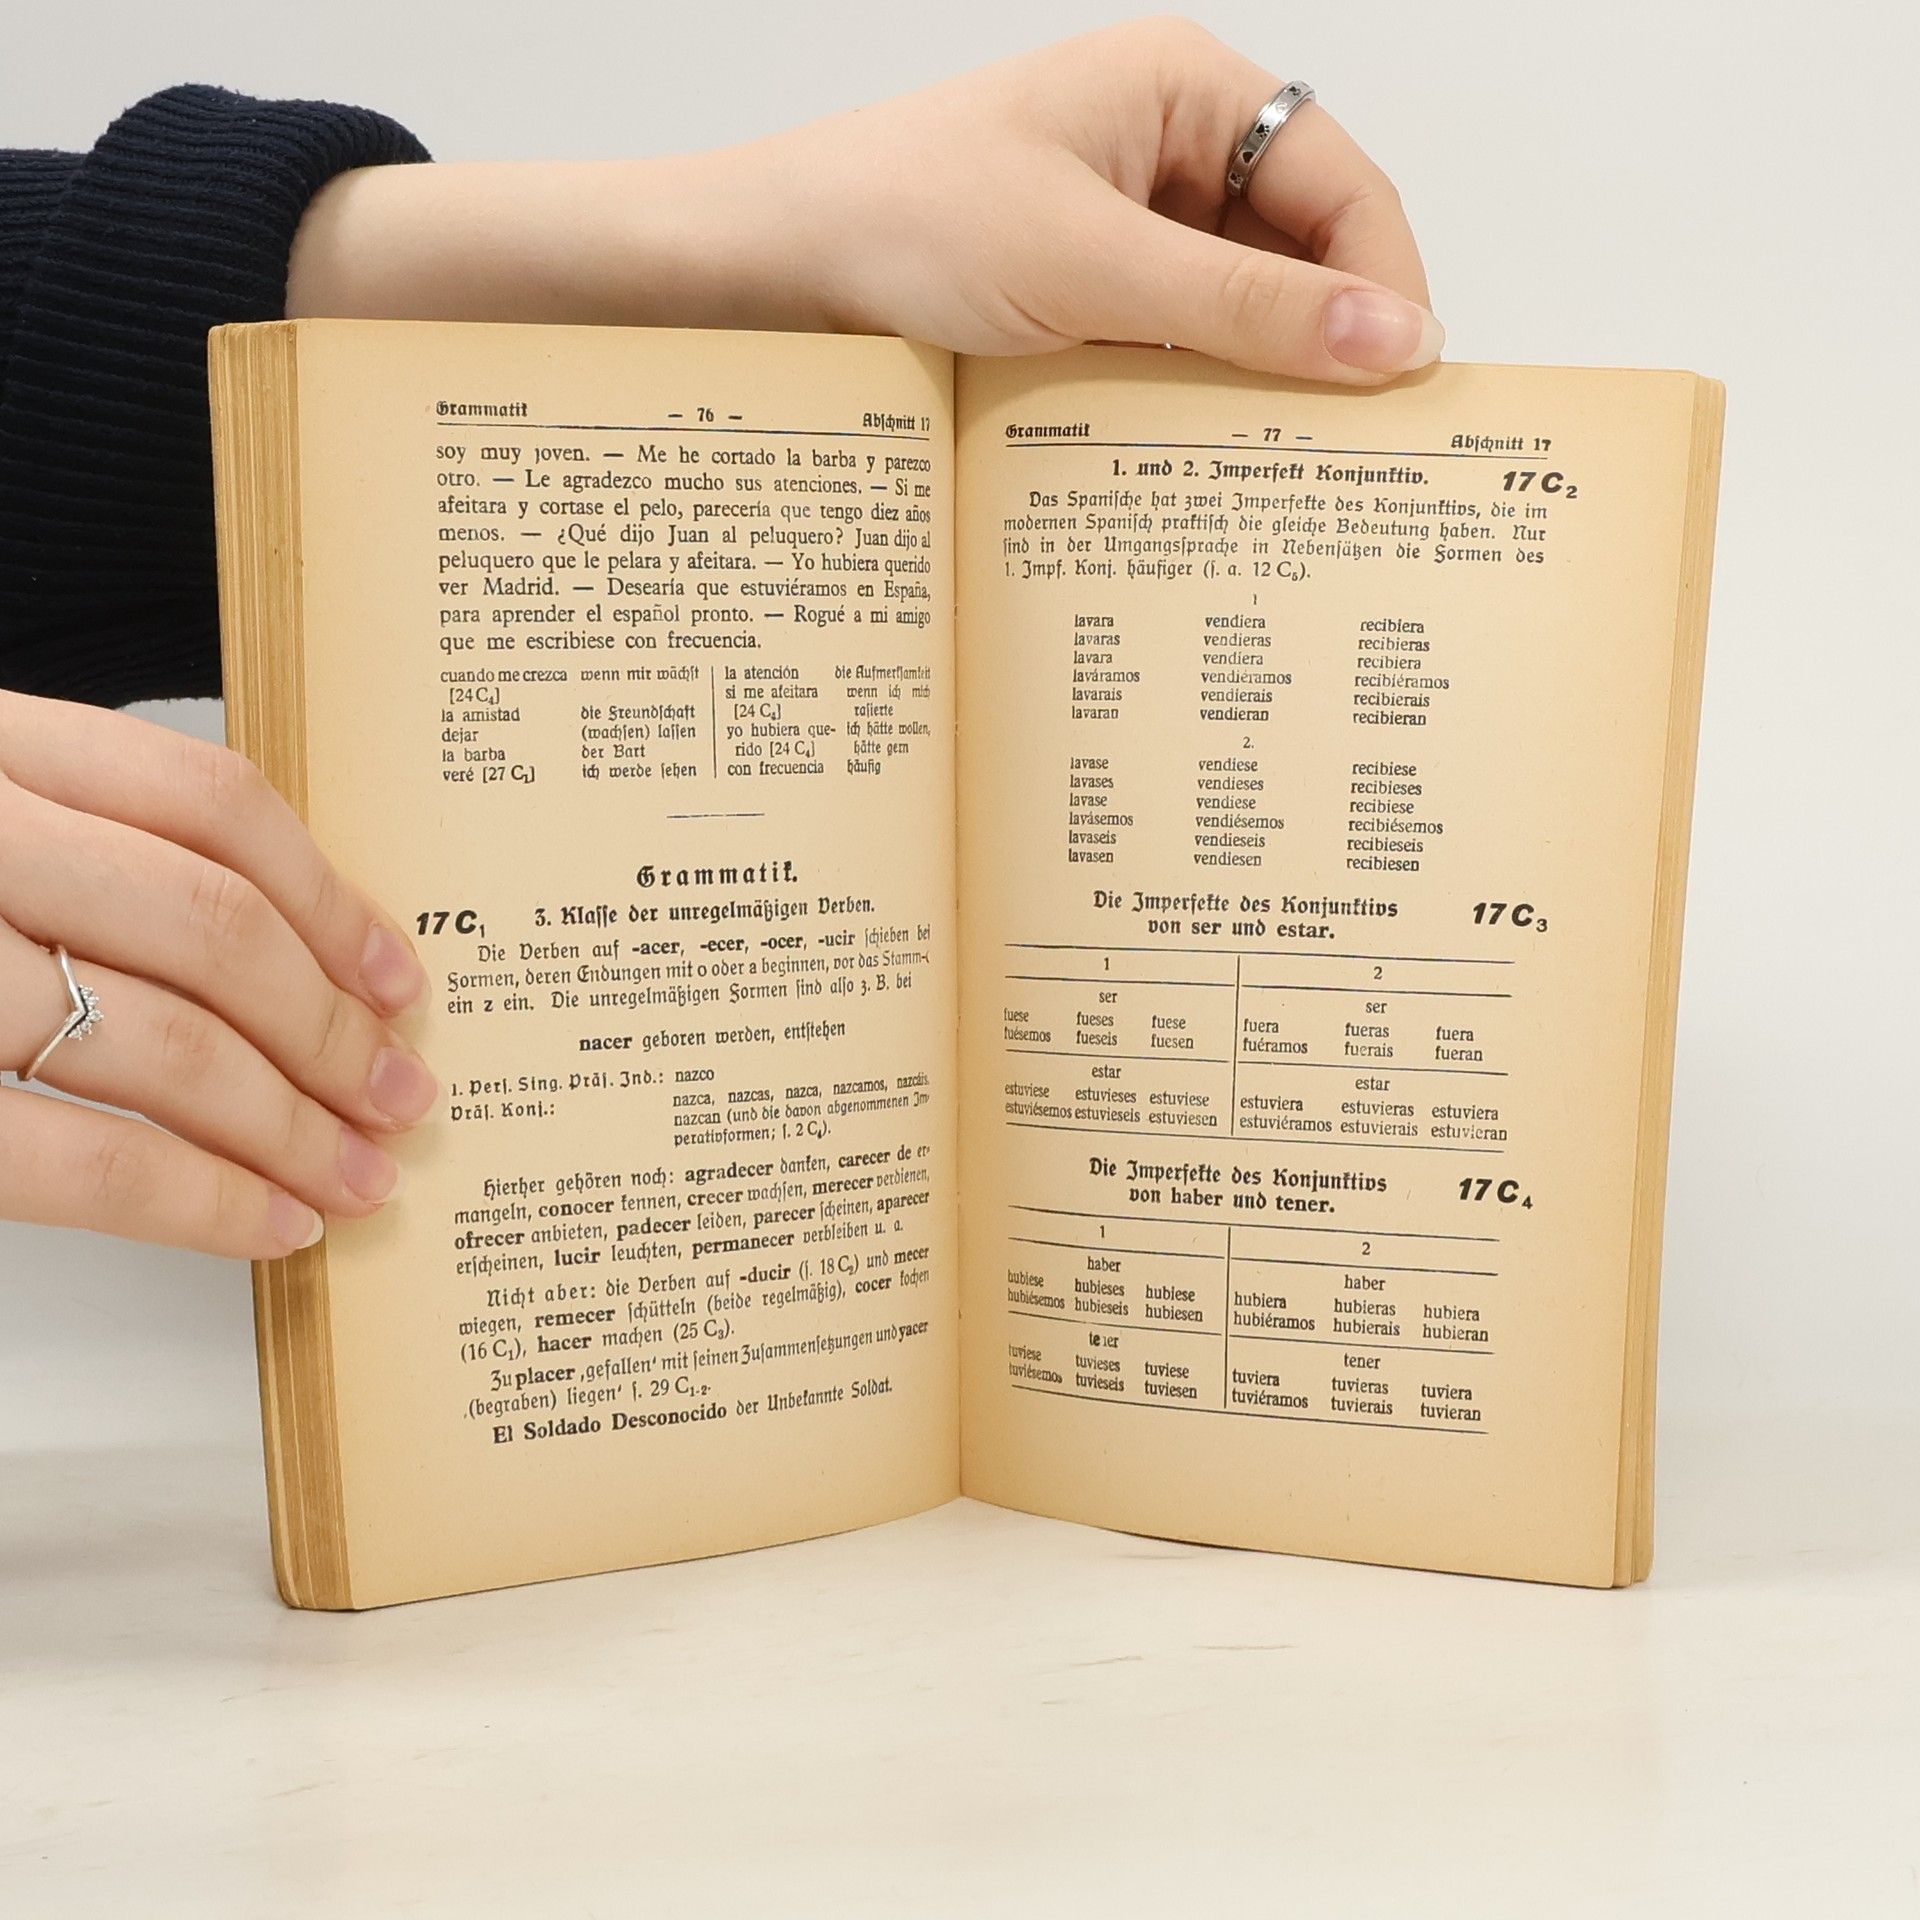 Grammatik — 76 — Abschnitt 17
soy muy joven. — Me he cortado la barba y parezco
otro. — Le agradezco mucho sus atenciones. — Si me
afeitara y cortase el pelo, parecería que tengo diez años
menos. — ¿Qué dijo Juan al peluquero? Juan dijo al
peluquero que le pelara y afeitara. — Yo hubiera querido
ver Madrid. — Desearía que estuviéramos en España,
para aprender el español pronto. — Rogué a mi amigo
que me escribiese con frecuencia.
cuando me crezca wenn mir wächst
[24 C₄]
la amistad die Freundschaft
dejar (wachsen) lassen
la barba der Bart
veré [27 C₁] ich werde sehen
la atención die Aufmerksamkeit
si me afeitara wenn ich mich
[24 C₄] rasierte
yo hubiera que- ich hätte wollen,
rido [24 C₄] hätte gern
con frecuencia häufig
Grammatik.
17 C₁ 3. Klasse der unregelmäßigen Verben.
Die Verben auf -acer, -ecer, -ocer, -ucir schieben bei
Formen, deren Endungen mit o oder a beginnen, vor das Stamm-c
ein z ein. Die unregelmäßigen Formen sind also z. B. bei
nacer geboren werden, entstehen
1. Pers. Sing. Präs. Ind.: nazco
Präs. Konj.: nazca, nazcas, nazca, nazcamos, nazcáis,
nazcan (und die davon abgenommenen Im-
perativformen; s. 2 C₄).
Hierher gehören noch: agradecer danken, carecer de er-
mangeln, conocer kennen, crecer wachsen, merecer verdienen,
ofrecer anbieten, padecer leiden, parecer scheinen, aparecer
erscheinen, lucir leuchten, permanecer verbleiben u. a.
Nicht aber: die Verben auf -ducir (s. 18 C₂) und mecer
wiegen, remecer schütteln (beide regelmäßig), cocer kochen
(16 C₁), hacer machen (25 C₃).
Zu placer ‚gefallen‘ mit seinen Zusammensetzungen und yacer
‚(begraben) liegen‘ s. 29 C₁₋₂.
El Soldado Desconocido der Unbekannte Soldat.
Grammatik — 77 — Abschnitt 17
1. und 2. Imperfekt Konjunktiv. 17 C₂
Das Spanische hat zwei Imperfekte des Konjunktivs, die im
modernen Spanisch praktisch die gleiche Bedeutung haben. Nur
sind in der Umgangssprache in Nebensätzen die Formen des
1. Impf. Konj. häufiger (s. a. 12 C₅).
1
lavara vendiera recibiera
lavaras vendieras recibieras
lavara vendiera recibiera
laváramos vendiéramos recibiéramos
lavarais vendierais recibierais
lavaran vendieran recibieran
2.
lavase vendiese recibiese
lavases vendieses recibieses
lavase vendiese recibiese
lavásemos vendiésemos recibiésemos
lavaseis vendieseis recibieseis
lavasen vendiesen recibiesen
Die Imperfekte des Konjunktivs 17 C₃
von ser und estar.
1 2
ser ser
fuese fueses fuese fuera fueras fuera
fuésemos fueseis fuesen fuéramos fuerais fueran
estar estar
estuviese estuvieses estuviese estuviera estuvieras estuviera
estuviésemos estuvieseis estuviesen estuviéramos estuvierais estuvieran
Die Imperfekte des Konjunktivs 17 C₄
von haber und tener.
1 2
haber haber
hubiese hubieses hubiese hubiera hubieras hubiera
hubiésemos hubieseis hubiesen hubiéramos hubierais hubieran
tener tener
tuviese tuvieses tuviese tuviera tuvieras tuviera
tuviésemos tuvieseis tuviesen tuviéramos tuvierais tuvieran